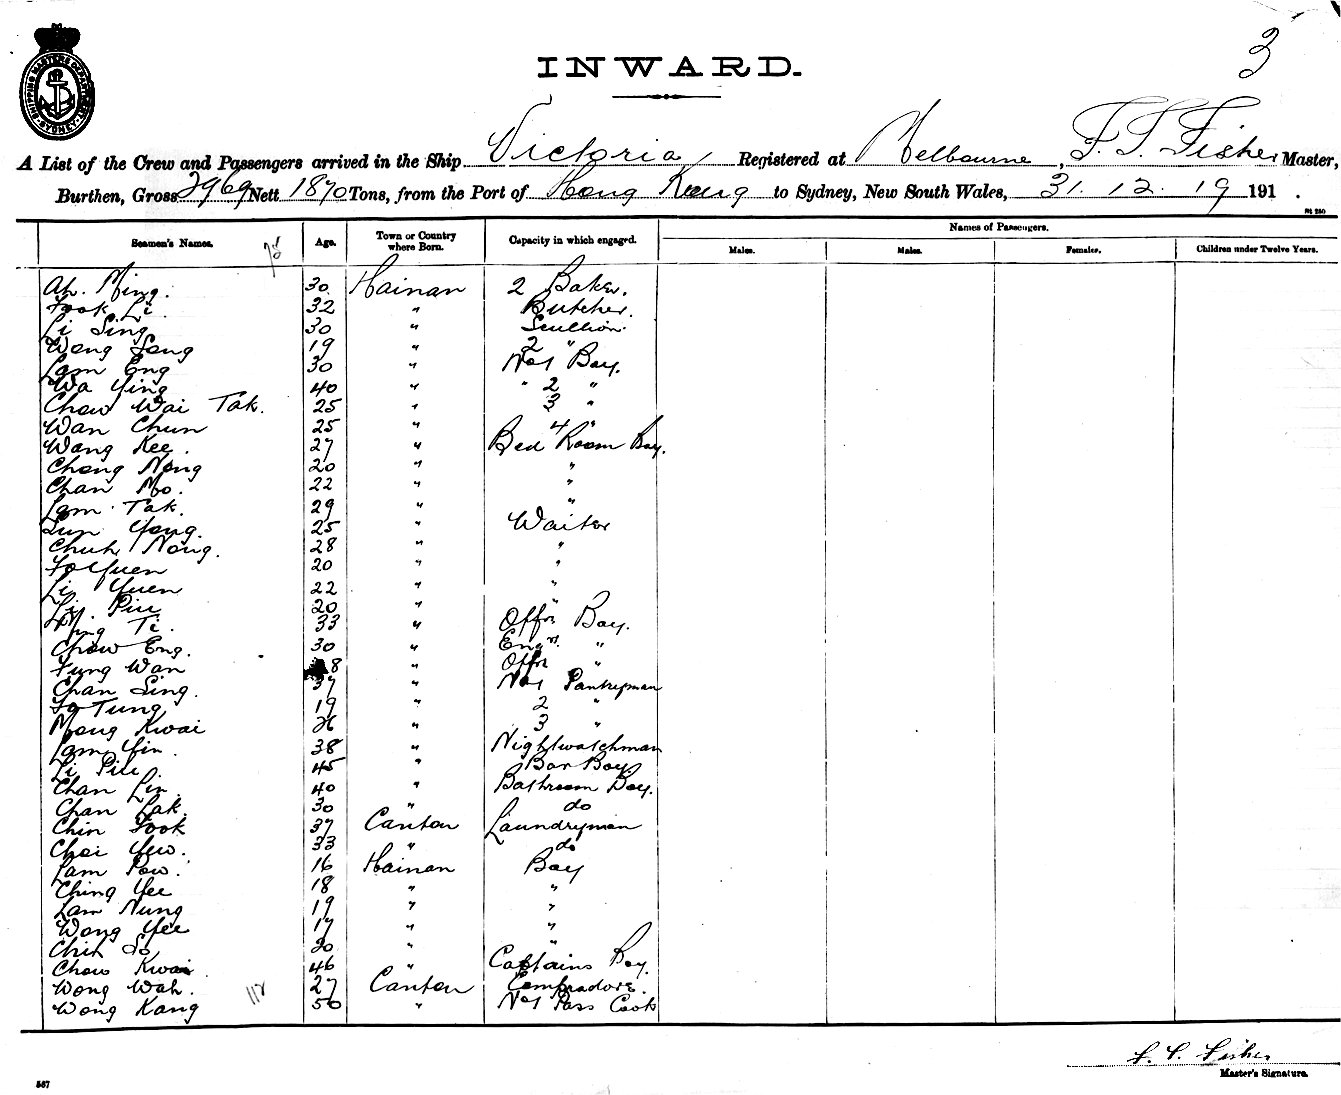 3
SHIPPING MASTERS DEPARTMENT SYDNEY
INWARD.
A List of the Crew and Passengers arrived in the Ship Victoria Registered at Melbourne, F. S. Fisher Master,
Burthen, Gross 2969 Nett 1870 Tons, from the Port of Hong Kong to Sydney, New South Wales, 31. 12. 19 191 .
Seamen's Names. Age. Town or Country where Born. Capacity in which engaged. Names of Passengers.
Males. Males. Females. Children under Twelve Years.
Ah. Ming. 30. Hainan 2 Baker.
Fook Li. 32 " Butcher.
Li Sing 30 " Scullion.
Wong Song 19 " 2 "
Lam Eng 30 " No 1 Boy.
Wa Ying 40 " " 2 "
Chow Wai Tak. 25 " 3 "
Wan Chun 25 " 4 "
Wong Kee. 27 " Bed Room Boy.
Chong Nong 20 " "
Chan Mo. 22 " "
Lam Tak. 29 " "
Sun Yong. 25 " Waiter
Chuh Nong. 28 " "
Fo Yuen 20 " "
Li Yuen 22 " "
Li Piu 20 " "
Ming Ti. 33 " Offrs Boy.
Chow Eng. 30 " Engrs. "
Fung Wan 8 " Offrs "
Chan Sing. 37 " No 1 Pantryman
Fo Tung 19 " 2 "
Mong Kwai 26 " 3 "
Lam Yin. 38 " Nightwatchman
Li Piu. 45 " Bar Boy.
Chan Lin. 40 " Bathroom Boy.
Chan Lak. 30 " do
Chin Fook 37 Canton Laundryman
Choi Yew. 33 " do
Lam Pow. 16 Hainan Boy
Ching Yee 18 " "
Lam Nung 19 " "
Wong Yee 17 " "
Chin So 20 " "
Chow Kwai. 46 " Captains Boy.
Wong Wah. 27 Canton Compradore.
Wong Kang 50 " No 1 Pass Cook
F. S. Fisher
Master's Signature.
567